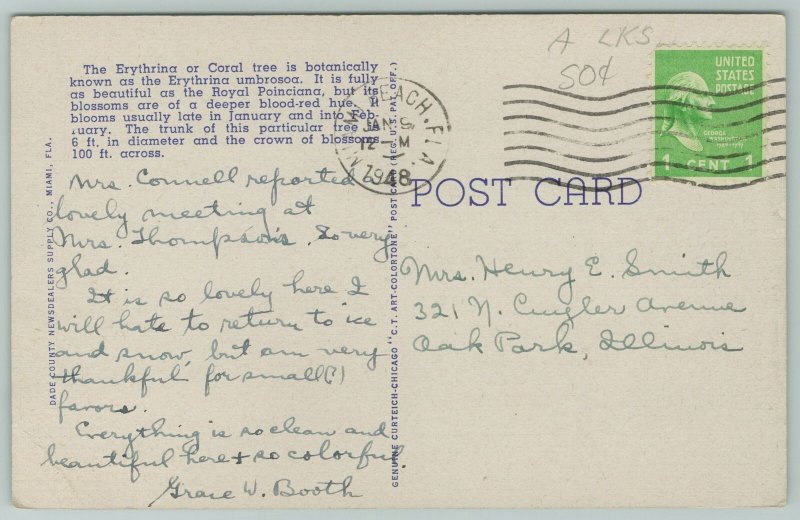 The Erythrina or Coral tree is botanically
known as the Erythrina umbrosoa. It is fully
as beautiful as the Royal Poinciana, but its
blossoms are of a deeper blood-red hue. It
blooms usually late in January and into Feb-
ruary. The trunk of this particular tree is
6 ft. in diameter and the crown of blossoms
100 ft. across.
Mrs. Connell reported a
lovely meeting at
Mrs. Thompson's. So very
glad.
It is so lovely here I
will hate to return to ice
and snow, but am very
thankful for small(?)
favors.
Everything is so clean and
beautiful here + so colorful.
Grace W. Booth
DADE COUNTY NEWSDEALERS SUPPLY CO., MIAMI, FLA.
GENUINE CURTEICH-CHICAGO "C.T. ART-COLORTONE" POST CARD (REG. U.S. PAT. OFF.)
A LKS
50¢
BEACH, FLA.
JAN 9
12 M
1948
UNITED
STATES
POSTAGE
GEORGE
WASHINGTON
1789-1797
1 CENT 1
POST CARD
Mrs. Henry E. Smith
321 N. Cuyler Avenue
Oak Park, Illinois